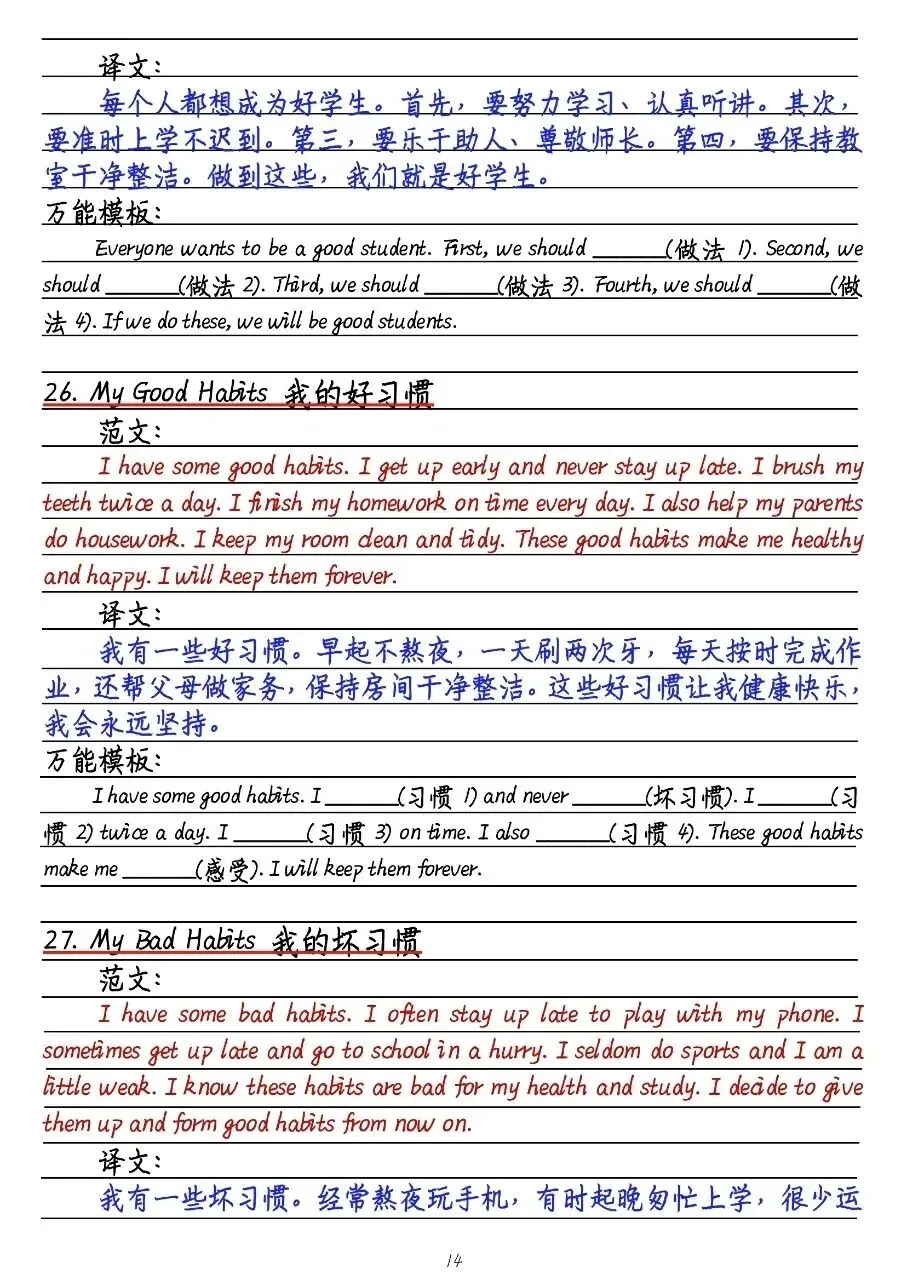 译文：
每个人都想成为好学生。首先，要努力学习、认真听讲。其次，
要准时上学不迟到。第三，要乐于助人、尊敬师长。第四，要保持教
室干净整洁。做到这些，我们就是好学生。
万能模板：
Everyone wants to be a good student. First, we should ______(做法 1). Second, we
should ______(做法 2). Third, we should ______(做法 3). Fourth, we should ______(做
法 4). If we do these, we will be good students.
26. My Good Habits 我的好习惯
范文：
I have some good habits. I get up early and never stay up late. I brush my
teeth twice a day. I finish my homework on time every day. I also help my parents
do housework. I keep my room clean and tidy. These good habits make me healthy
and happy. I will keep them forever.
译文：
我有一些好习惯。早起不熬夜，一天刷两次牙，每天按时完成作
业，还帮父母做家务，保持房间干净整洁。这些好习惯让我健康快乐，
我会永远坚持。
万能模板：
I have some good habits. I ______(习惯 1) and never ______(坏习惯). I ______(习
惯 2) twice a day. I ______(习惯 3) on time. I also ______(习惯 4). These good habits
make me ______(感受). I will keep them forever.
27. My Bad Habits 我的坏习惯
范文：
I have some bad habits. I often stay up late to play with my phone. I
sometimes get up late and go to school in a hurry. I seldom do sports and I am a
little weak. I know these habits are bad for my health and study. I decide to give
them up and form good habits from now on.
译文：
我有一些坏习惯。经常熬夜玩手机，有时起晚匆忙上学，很少运
14